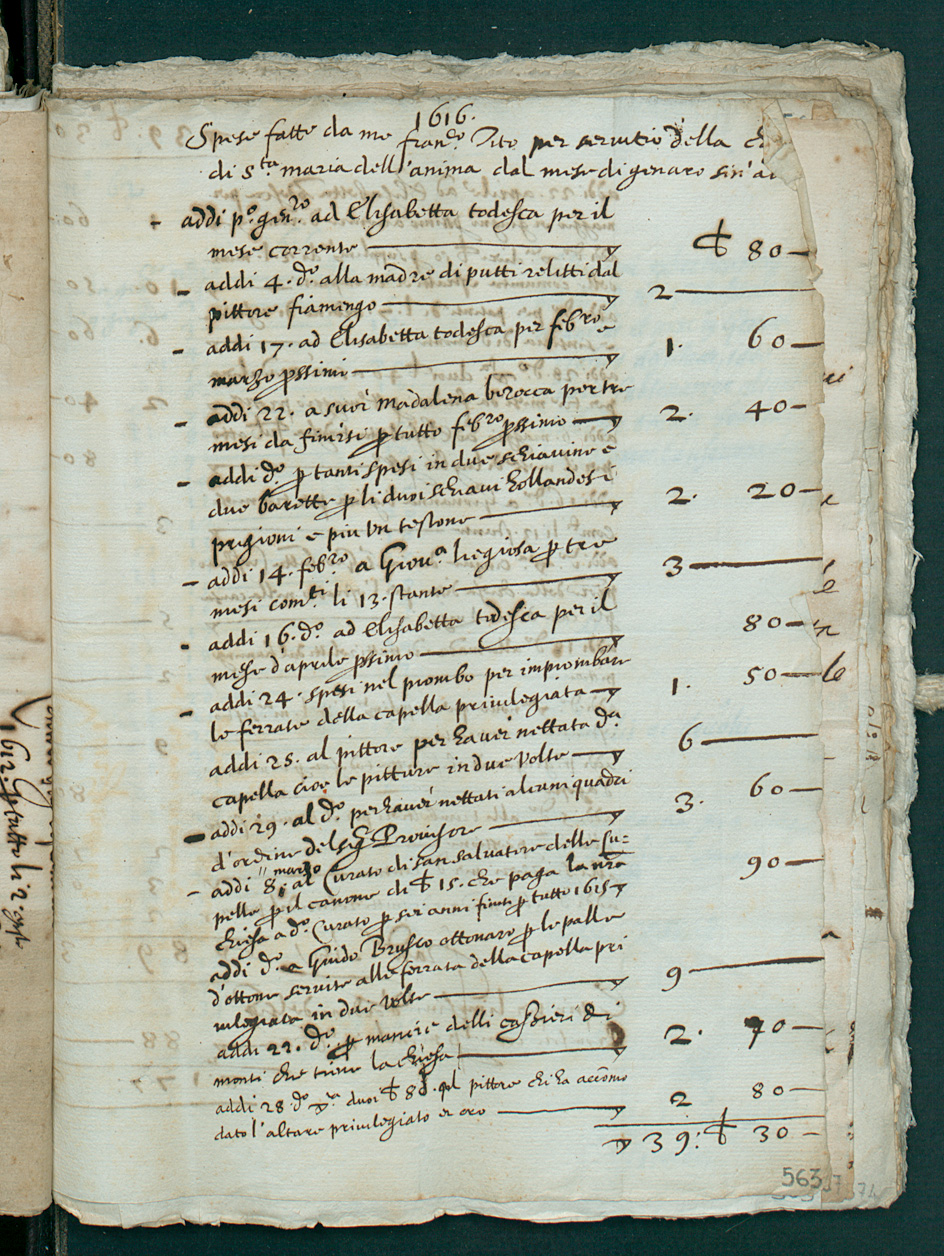 1616.
Spese fatte da me fran.do Tito per servitio della
di S.ta maria dell'anima dal mese di genaro sin'a
addi p.o gen.ro ad Elisabetta todesca per il
mese corrente 80
addi 4. d.o alla madre di putti relitti dal
pittore fiamengo 2
addi 17. ad Elisabetta todesca per febro e
marzo pssimi 1. 60
addi 22. a suor Madalena berocca per tre
mesi da finirsi p tutto feb.ro pssimo 2. 40
addi d.o p tanti spesi in due schiavine e
due barette p li duoi schiavi hollandesi
prigioni e piu un testone 2. 20
addi 14. feb.ro a Giov.a liegiosa p tre
mesi com.ti li 13. stante 3
addi 16. d.o ad Elisabetta todesca per il
mese d'aprile pssimo 80
addi 24. spesi nel piombo per impiombare
le ferrate della capella privilegiata 1. 50
addi 25. al pittore per haver nettata d.a
capella cioe le pitture in due volte 6
addi 29. al d.o per haver nettati alcuni quadri
d'ordine del Sig. Provisore 3. 60
addi 8. marzo al Curato di san salvatore delle su=
pelle p il canone di 15. che paga la nra
chiesa a d.o Curato p sei anni finiti p tutto 1615 90
addi d.o a Guido Brusco ottonaro p le palle
d'ottone servite alle ferrata della capella pri
vilegiata in due volte 9
addi 22. d.o p mancie delli cassieri di
monti che tiene la chiesa 2. 70
addi 28 d.o duoi 80. al pittore che ha accomo
dato l'altare privilegiato et oro 2 80
39: 30
563
1612. p tutto li 2. agto